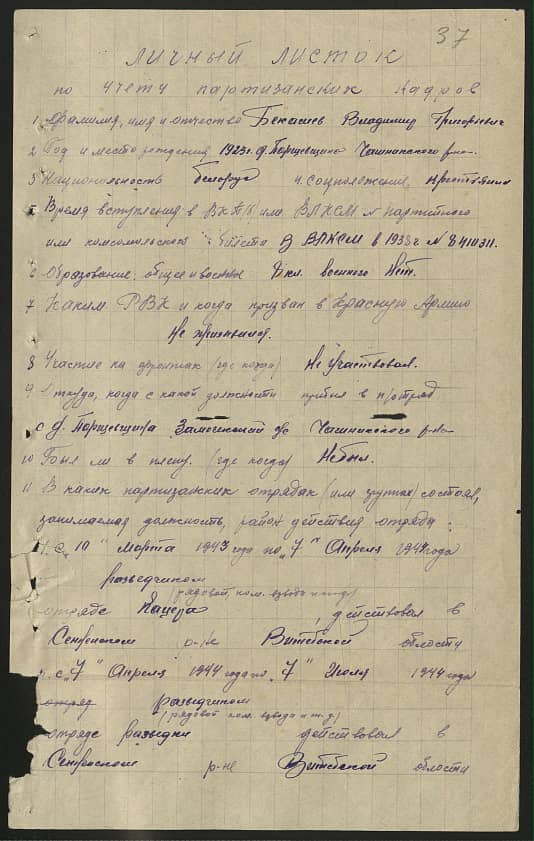 37
ЛИЧНЫЙ ЛИСТОК
по учету партизанских кадров
1 Фамилия, имя и отчество Бекасиев Владимир Григорьевич
2 Год и место рождения 1923г. д. Порщевщина Чашникского р-на.
3 Национальность белорус 4. Соцположение, крестьянин
5 Время вступления в ВКП(б) или ВЛКСМ № партийного
или комсомольского билета В ВЛКСМ в 1938г № 8410311.
6 Образование: общее и военное 8 кл. военного Нет.
7 Каким РВК и когда призван в Красную Армию
Не призывался.
8 Участие на фронтах (где когда) Не участвовал.
9 Откуда, когда с какой должности прибыл в п/отряд
с д. Порщевщина с/с Чашникского р-на
10 Был ли в плену. (где когда) Не был.
11 В каких партизанских отрядах (или группах) состоял,
занимаемая должность, район действия отряда:
1. с "10" Марта 1943 года по "7" Апреля 1944 года
разведчиком
(рядовой, ком. взвода и т.д.)
отряде Кацера, действовал в
Сенненском р-не Витебской области
с "7" Апреля 1944 года по "7" Июля 1944 года
отряд разведчиком
(рядовой ком. взвода и т.д.)
отряде разведки действовал в
Сенненском р-не Витебской области